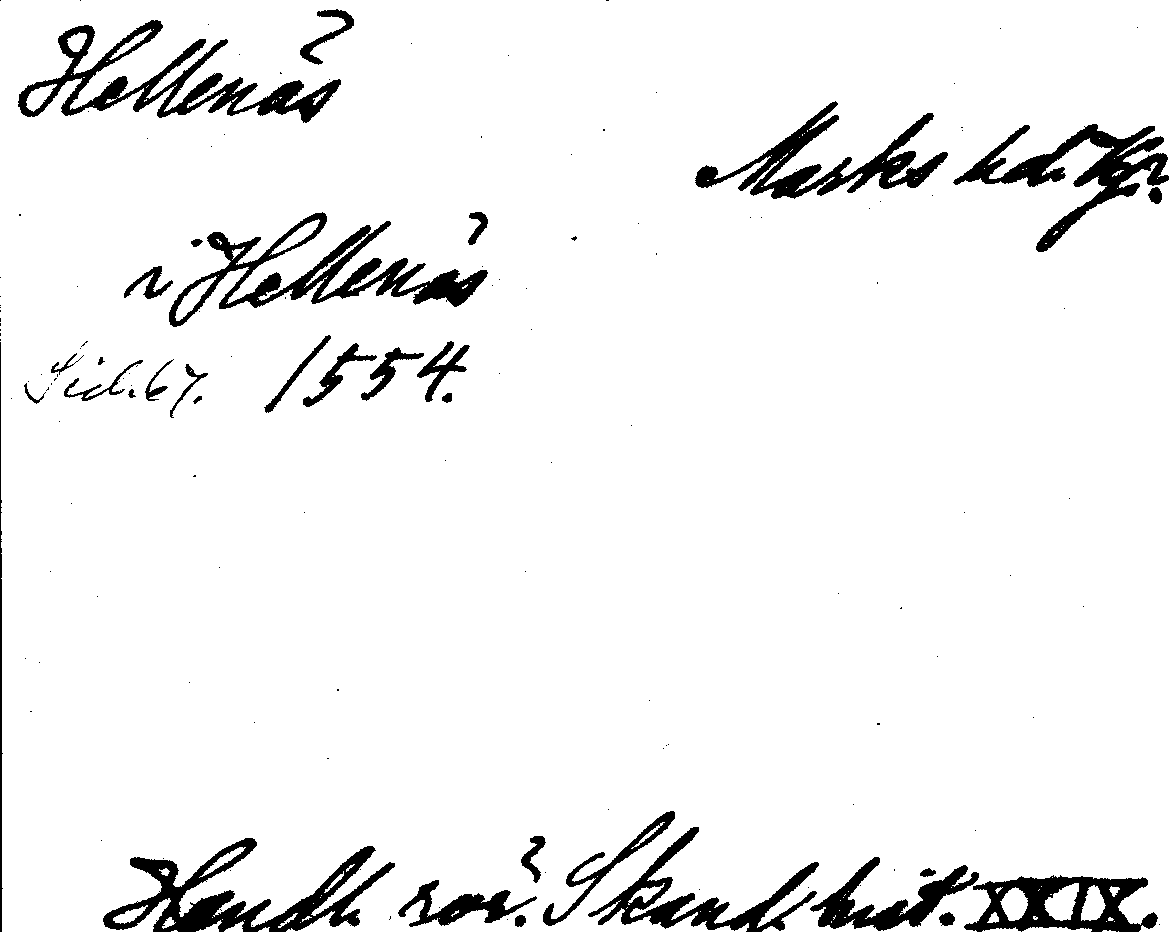 Hellenäs
Marks hd. Kpr.
i Hellenäs
Sid. 67. 1554.
Handl. rör. Skand. hist. XXIX.